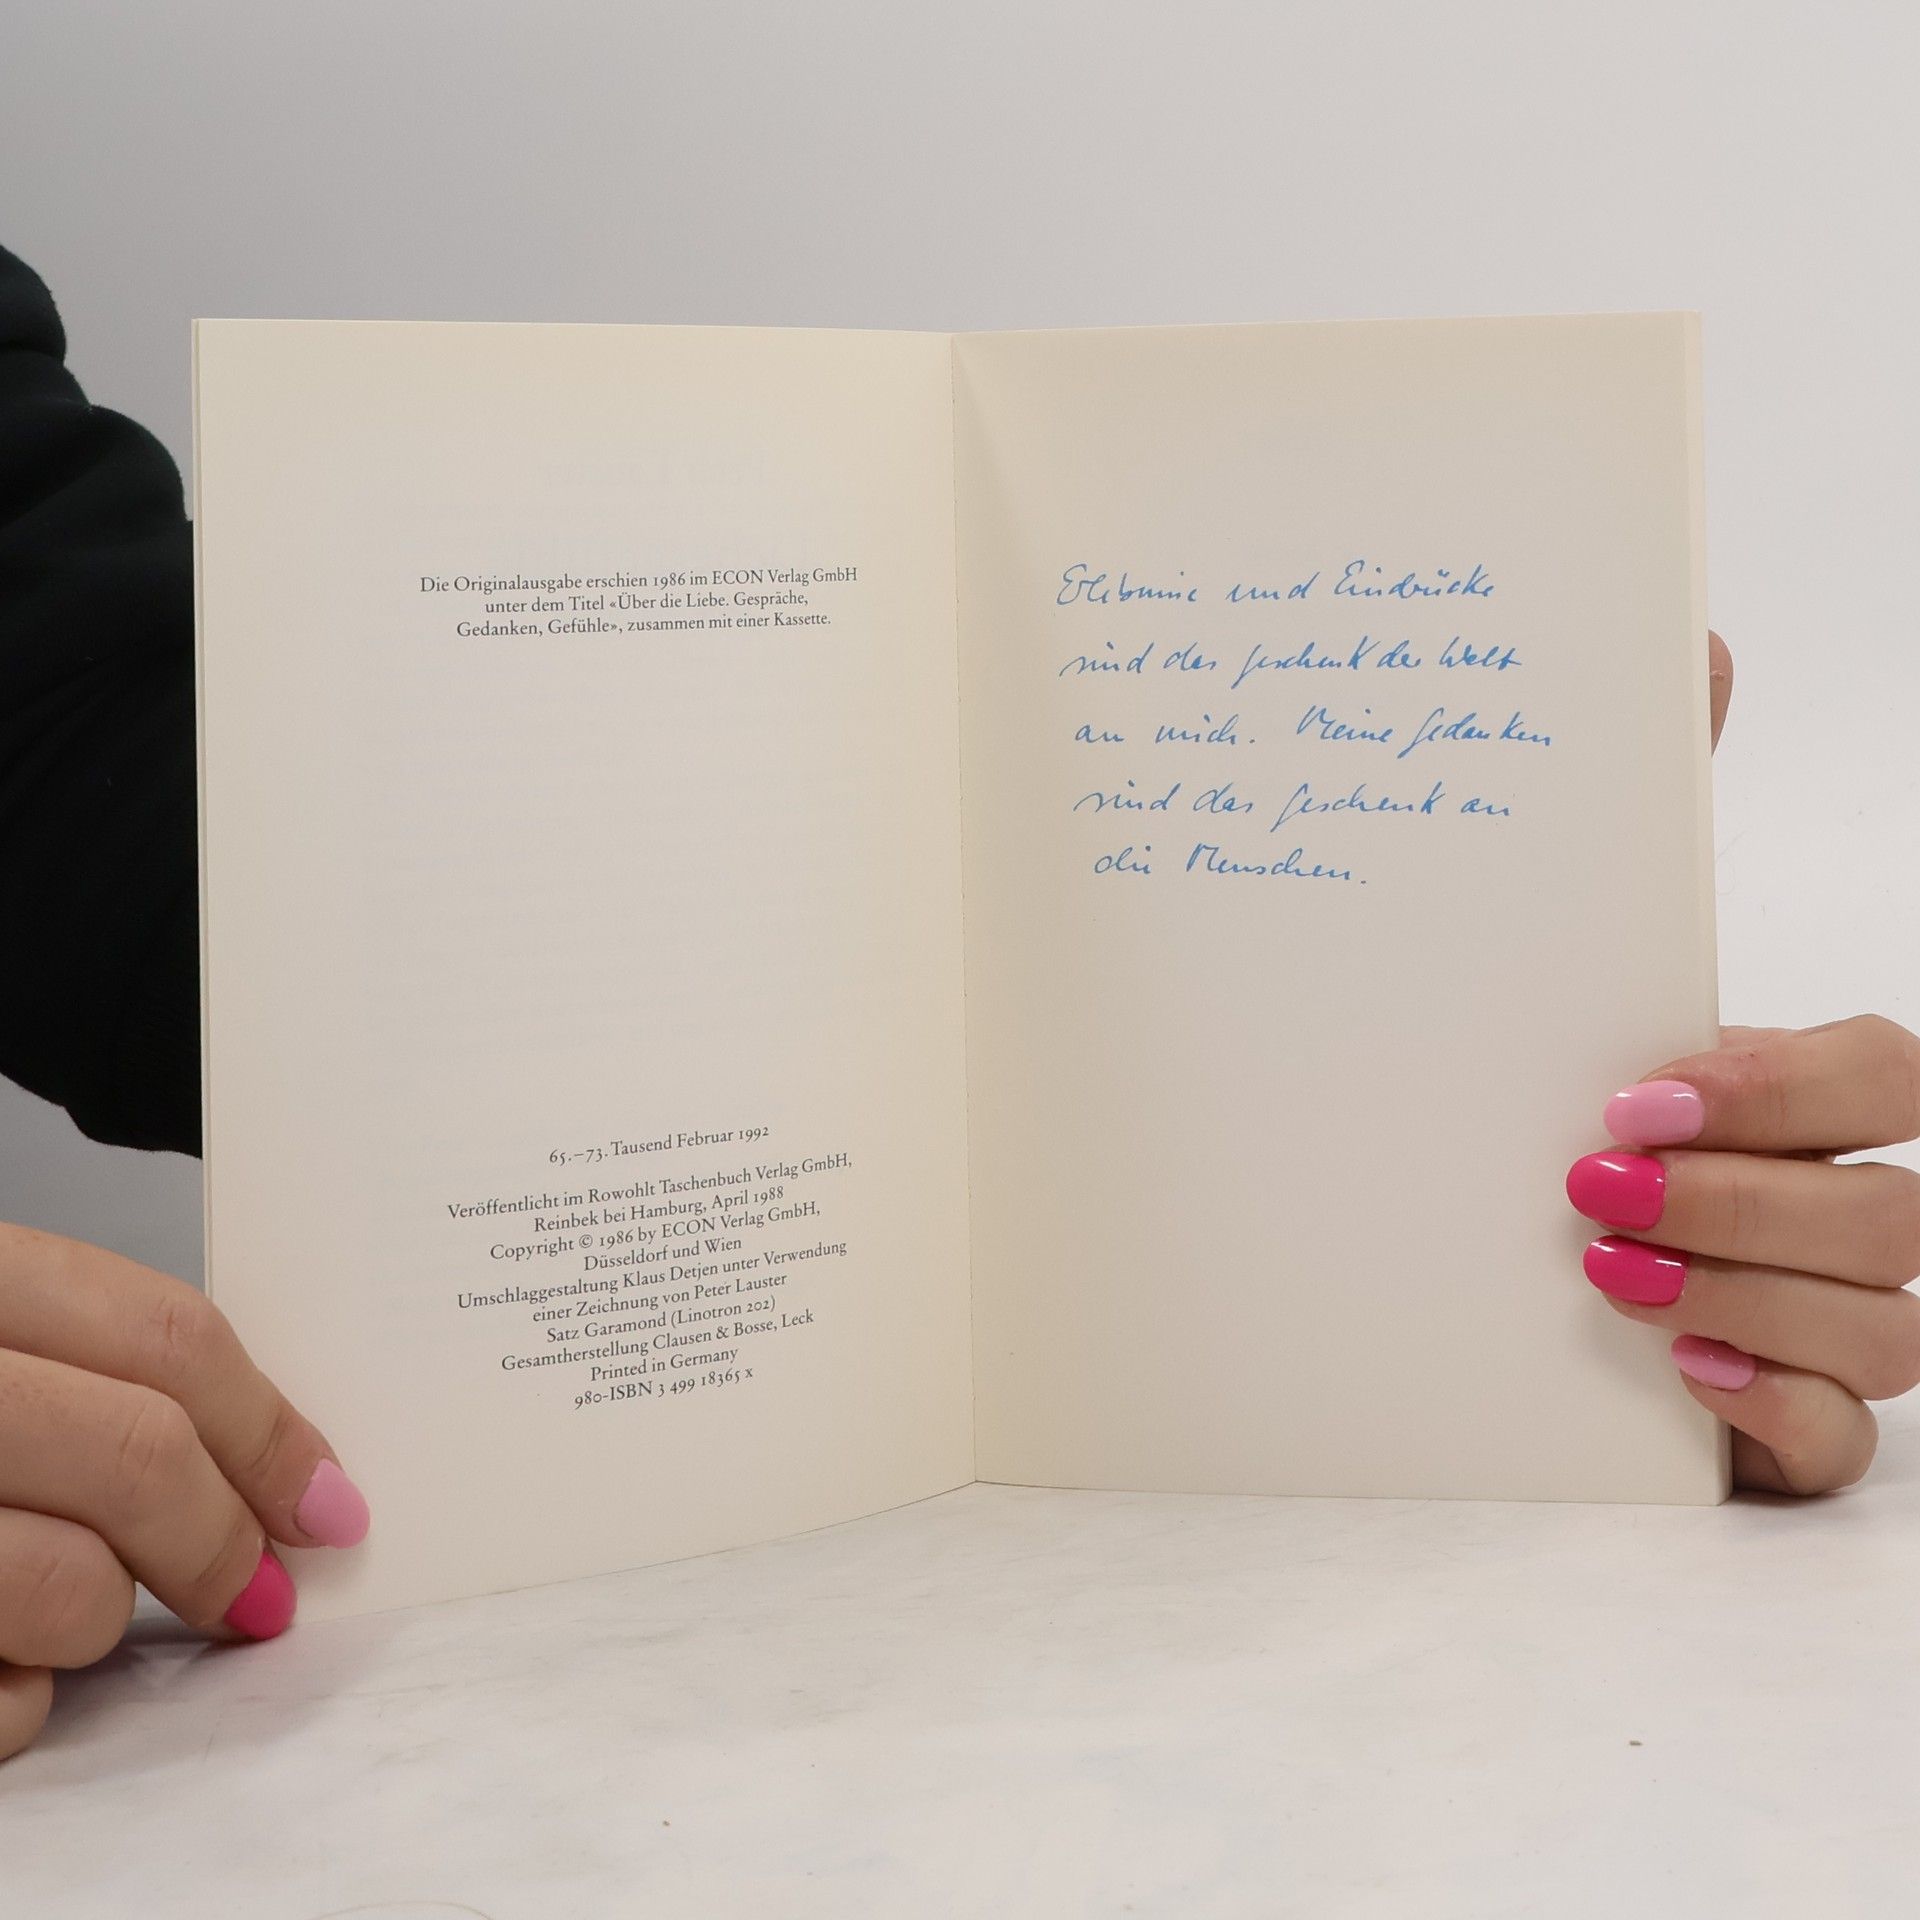 Die Originalausgabe erschien 1986 im ECON Verlag GmbH
unter dem Titel «Über die Liebe. Gespräche,
Gedanken, Gefühle», zusammen mit einer Kassette.
65.–73. Tausend Februar 1992
Veröffentlicht im Rowohlt Taschenbuch Verlag GmbH,
Reinbek bei Hamburg, April 1988
Copyright © 1986 by ECON Verlag GmbH,
Düsseldorf und Wien
Umschlaggestaltung Klaus Detjen unter Verwendung
einer Zeichnung von Peter Lauster
Satz Garamond (Linotron 202)
Gesamtherstellung Clausen & Bosse, Leck
Printed in Germany
980-ISBN 3 499 18365 x
Erlebnisse und Eindrücke
sind das Geschenk der Welt
an mich. Meine Gedanken
sind das Geschenk an
die Menschen.